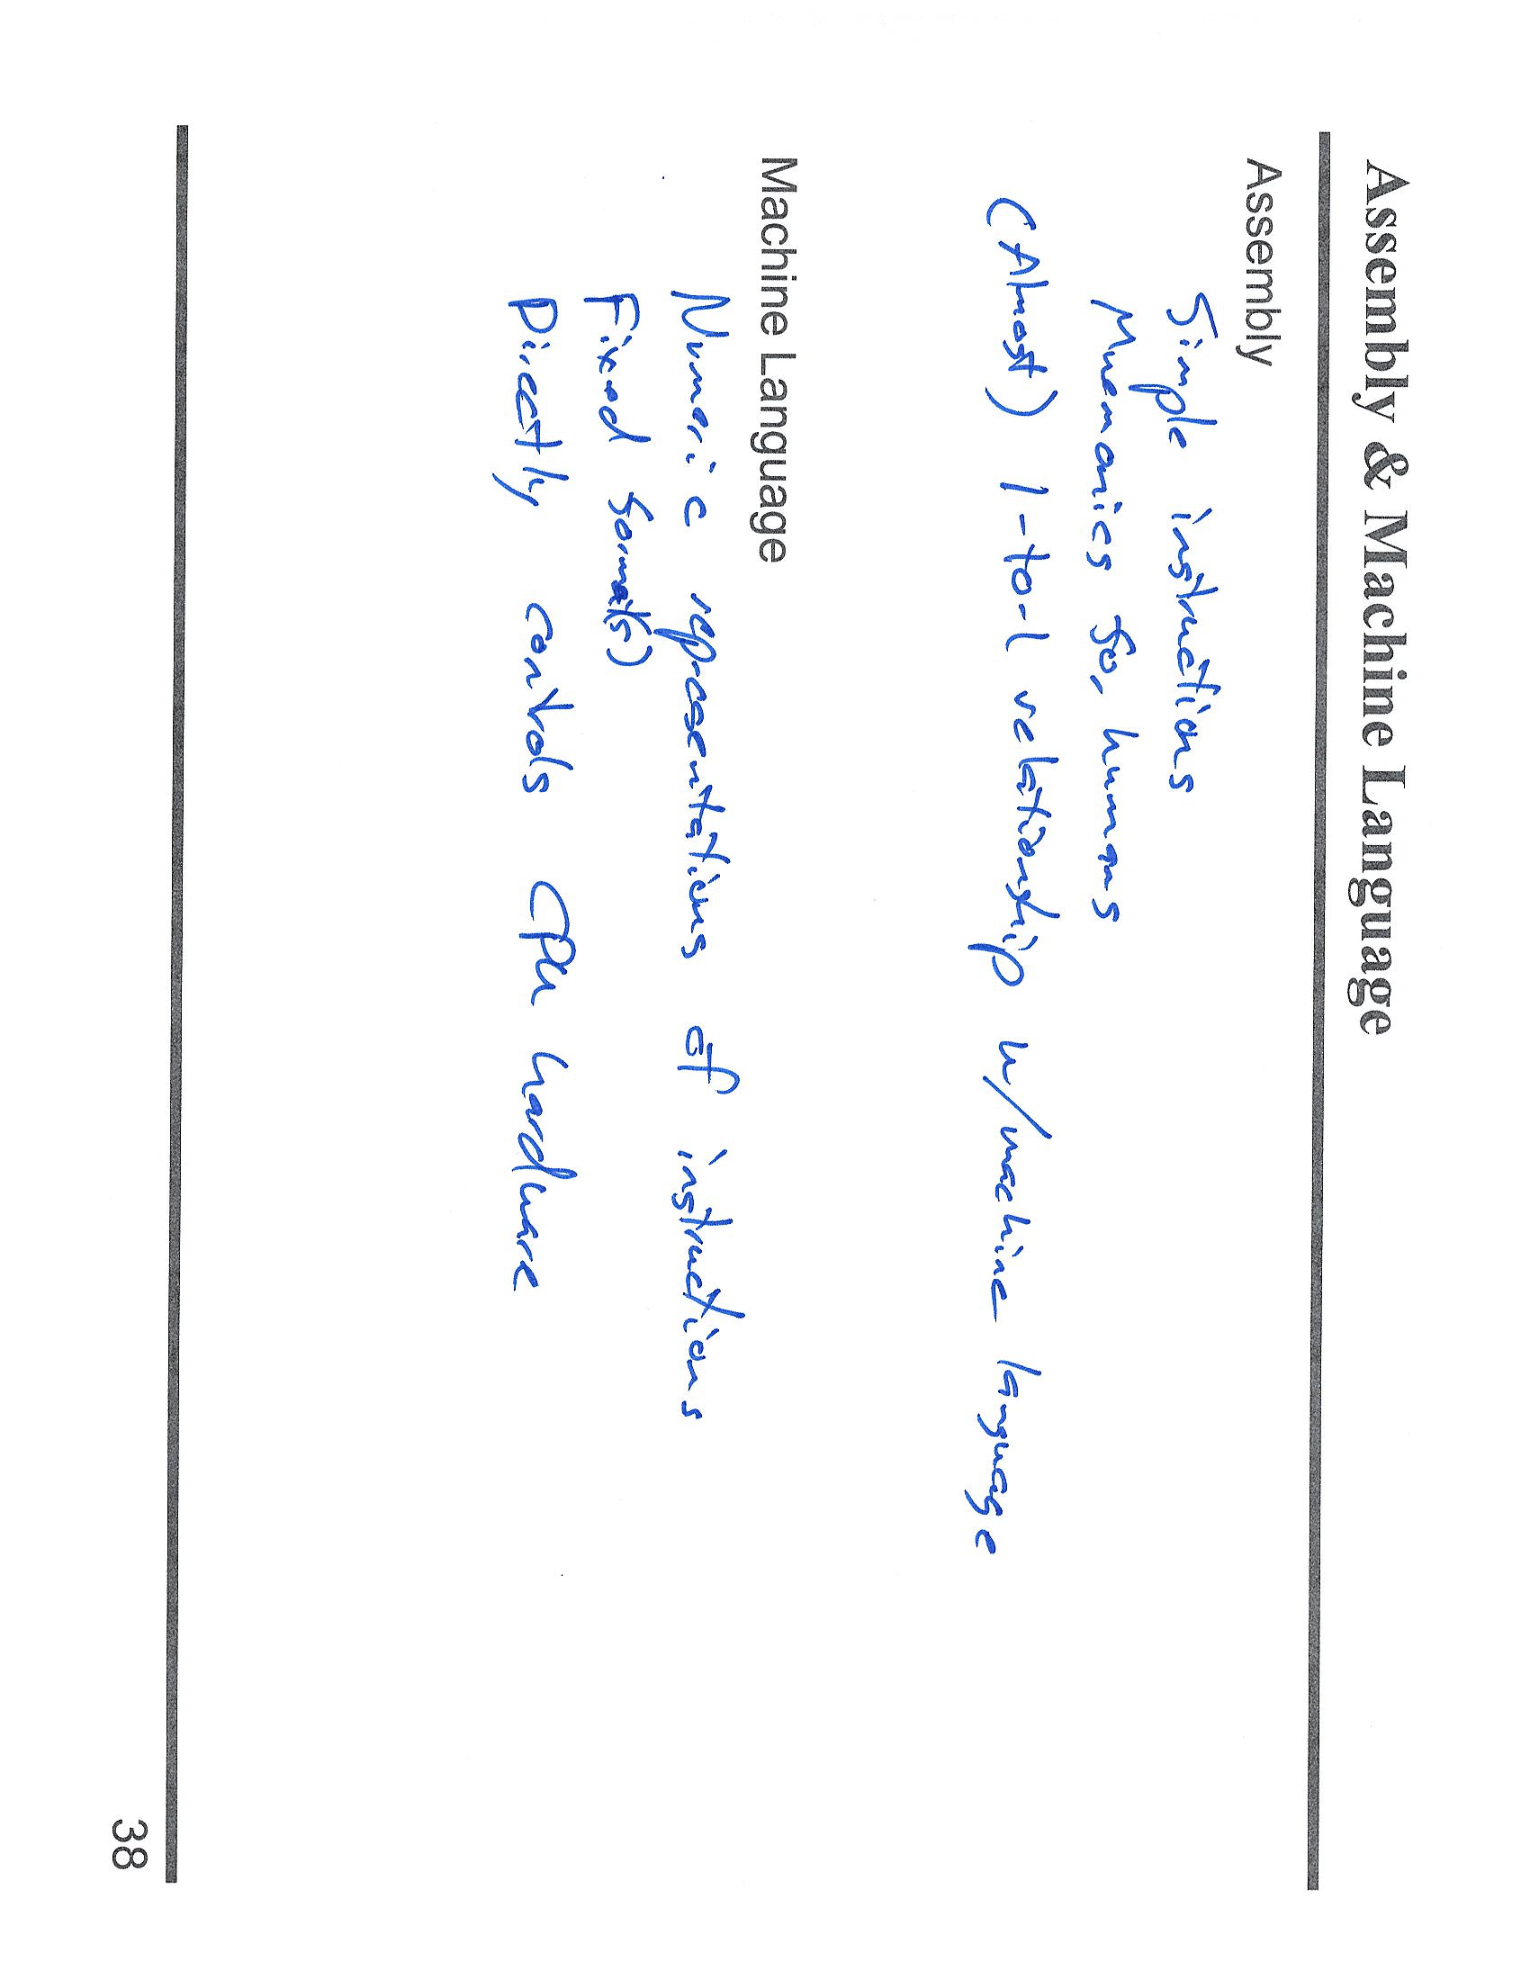 Assembly & Machine Language
Assembly
Simple instructions
Mnemonics for humans
(Almost) 1-to-1 relationship w/machine language
Machine Language
Numeric representations of instructions
Fixed format(s)
Directly controls CPU hardware
38